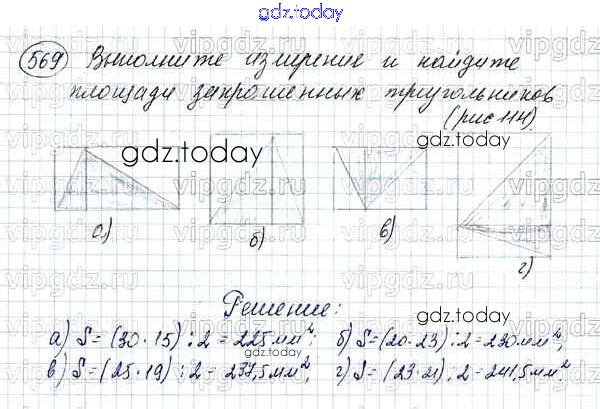 gdz.today
569 Выполните измерение и найдите
площади закрашенных треугольников
(рис 114).
gdz.today
а) б) в) г)
gdz.today
Решение:
gdz.today
а) S = (30 · 15) : 2 = 225 мм²; б) S = (20 · 23) : 2 = 230 мм²;
в) S = (25 · 19) : 2 = 237,5 мм²; г) S = (23 · 21) : 2 = 241,5 мм²
gdz.today